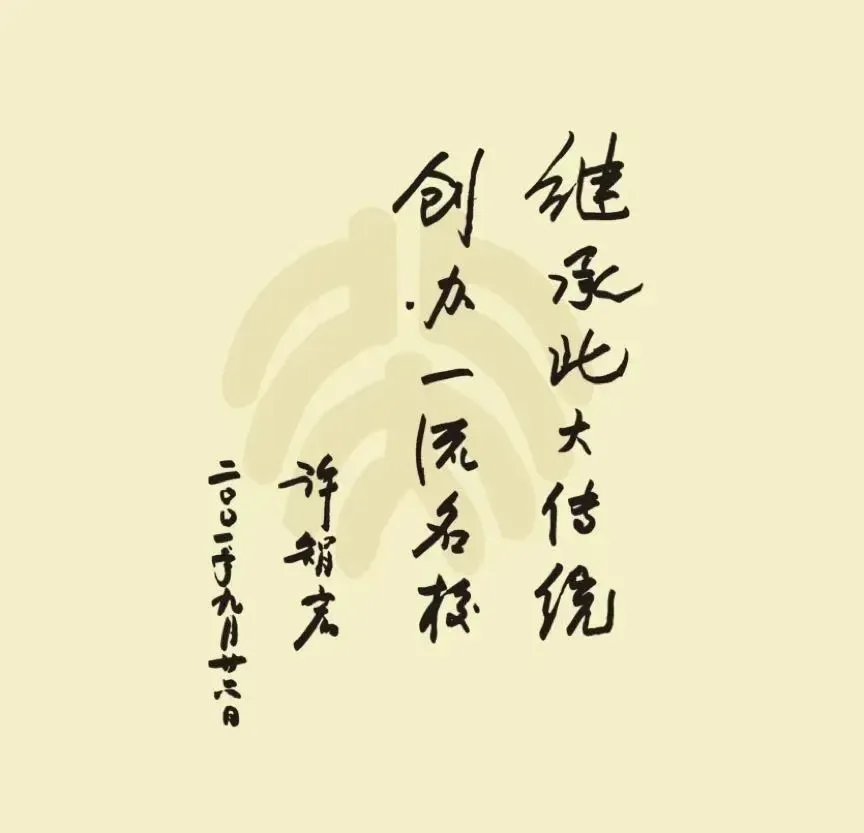 继承北大传统
创办一流名校
许智宏
二〇〇一年九月廿六日